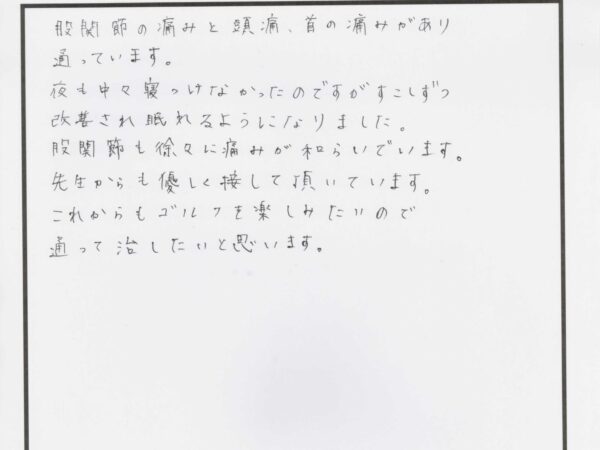 股関節の痛みと頭痛、首の痛みがあり
通っています。
夜も中々寝つけなかったのですがすこしずつ
改善され眠れるようになりました。
股関節も徐々に痛みが和らいでいます。
先生からも優しく接して頂いています。
これからもゴルフを楽しみたいので
通って治したいと思います。